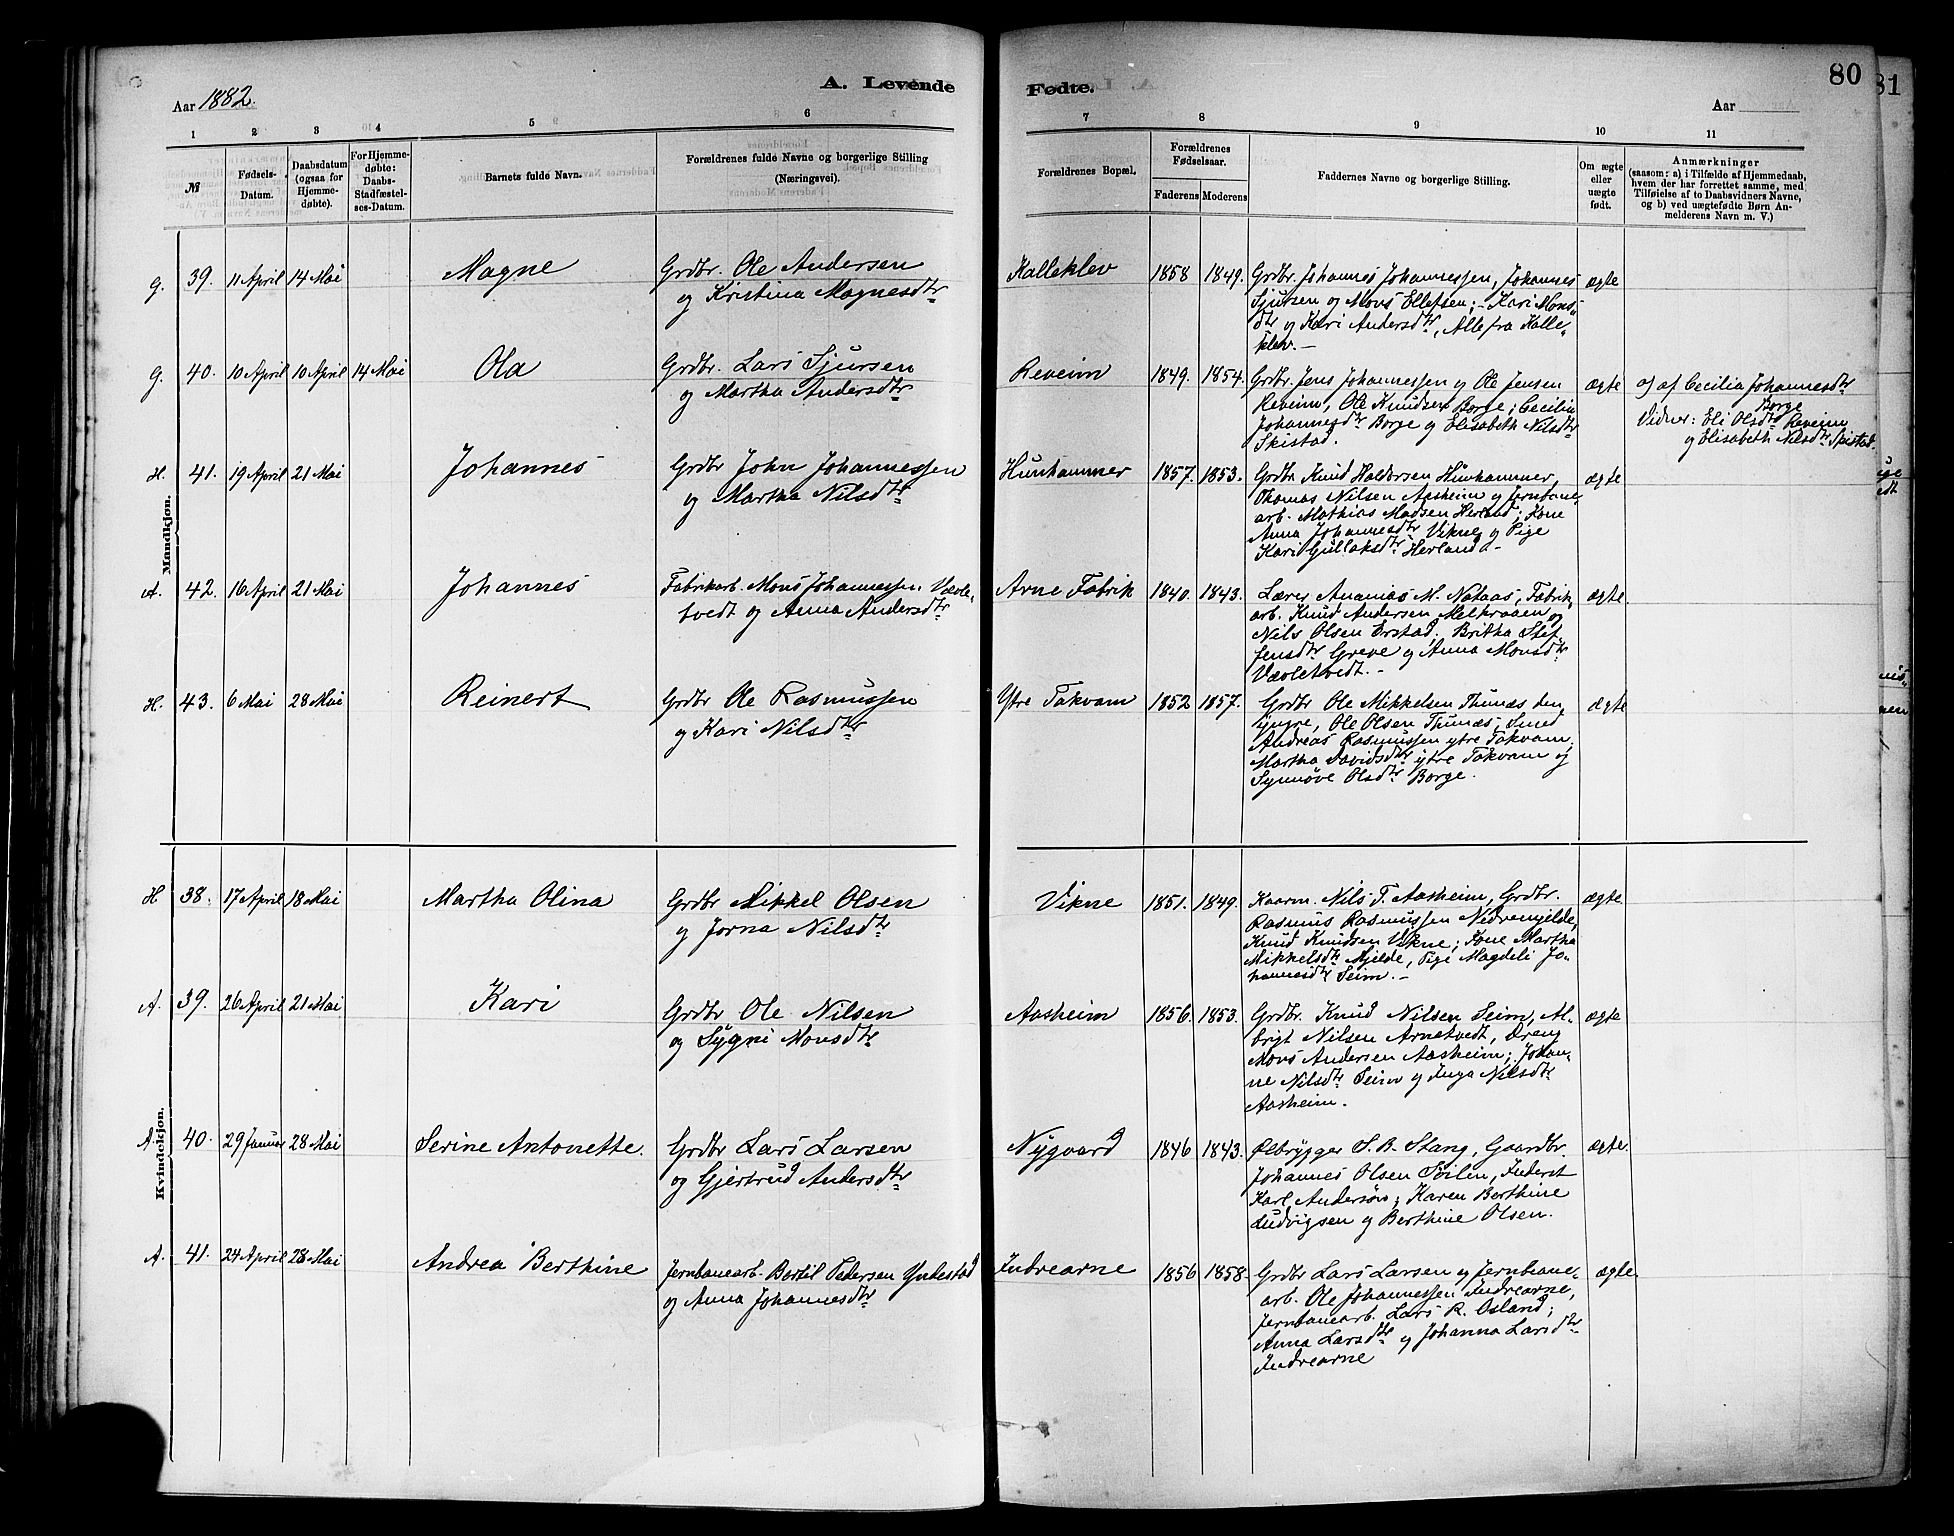 Aar 1882.
A. Levende
1
2
3
4
5
6
№
Fødsels-
Datum.
Daabsdatum
(ogsaa for
Hjemme-
døbte).
For Hjemme-
døbte:
Daabs-
Stadfæstel-
ses-Datum.
Barnets fulde Navn.
Forældrenes fulde Navne og borgerlige Stilling
(Næringsvei).
Mandkjøn.
G. 39. 11 April 14 Mai Magne Grdbr. Ole Andersen
og Kristina Magnesdtr
G. 40. 10 April 10 April 14 Mai Ola Grdbr. Lars Sjursen
og Martha Andersdtr
H. 41. 19 April 21 Mai Johannes Grdbr John Johannessen
og Martha Nilsdtr
A. 42. 16 April 21 Mai Johannes Fabrikarb. Mons Johannessen Vævle-
tvedt og Anna Andersdtr
H. 43. 6 Mai 28 Mai Reinert Grdbr Ole Rasmussen
og Kari Nilsdtr
Kvindekjøn.
H 38. 17 April 18 Mai Martha Olina Grdbr Mikkel Olsen
og Jorna Nilsdtr
A. 39. 26 April 21 Mai Kari Grdbr Ole Nilsen
og Sygni Monsdtr
A. 40. 29 Januar 28 Mai Serine Antonette. Grdbr Lars Larsen
og Gjertrud Andersdtr
A. 41. 24 April 28 Mai Andrea Berthine Jernbanearb. Bertil Pedersen Yndestad
og Anna Johannesdtr
Fødte.
80
Aar
7
8
9
10
11
Forældrenes Bopæl.
Forældrenes
Fødselsaar.
Faderens
Moderens
Faddernes Navne og borgerlige Stilling.
Om ægte
eller
uægte
født.
Anmærkninger
(saasom: a) i Tilfælde af Hjemmedaab,
hvem der har forrettet samme, med
Tilføielse af to Daabsvidners Navne,
og b) ved uægtefødte Børn An-
melderens Navn m. V.)
Kalleklev 1858 1849. Grdbr Johannes Johannessen, Johannes ægte
Sjursen og Mons Ellefsen; Kari Mons-
dtr og Kari Andersdtr, Alle fra Kalle-
klev.
Reveim 1849. 1854. Grdbr. Jens Johannessen og Ole Jensen ægte a) af Cecilia Johannesdtr
Reveim, Ole Knudsen Borge; Cecilia Borge
Johannesdtr Borge og Elisabeth Nilsdtr Vidner: Eli Olsdtr Reveim
Skistad. og Elisabeth Nilsdtr Skistad.
Hunhammer 1857. 1853. Grdbr Knud Haldorsen Hunhammer, ægte
Thomas Nilsen Aasheim og Jernbane-
arb. Mathias Madsen Herland; Kone
Anna Johannesdtr Vikne og Pige
Kari Gullaksdtr Herland.
Arne Fabrik 1840. 1843. Lærer Ananias M. Nataas, Fabrik- ægte.
arb. Knud Andersen Melkraaen og
Nils Olsen Erstad, Britha Stef-
fensdtr Greve og Anna Monsdtr
Vævletvedt.
Ytre Takvam 1852 1857. Grdbr Ole Mikkelsen Thunæs den ægte
yngre, Ole Olsen Thunæs, Smed
Andreas Rasmussen ytre Takvam,
Martha Davidsdtr ytre Takvam og
Synnøve Olsdtr Borge.
Vikne 1851. 1849. Kaarm. Nils T. Aasheim, Grdbr. ægte
Rasmus Rasmussen Nedremjelde,
Knud Knudsen Vikne; Kone Martha
Mikkelsdtr Mjelde, Pige Magdeli Jo-
hannesdtr Seim.
Aasheim 1856. 1853. Grdbr. Knud Nilsen Seim, Al- ægte
brigt Nilsen Arnetvedt, Dreng
Mons Andersen Aasheim; Johan-
ne Nilsdtr Seim og Inga Nilsdtr
Aasheim.
Nygaard 1846 1843. Ølbrygger S. B. Stang, Gaardbr. ægte.
Johannes Olsen Soilen, Inderst
Karl Anderson; Karen Berthine
Ludvigsen og Berthine Olsen.
Indrearne 1856 1858. Grdbr Lars Larsen og Jernbane- ægte.
arb. Ole Johannessen Indrearne,
Jernbanearb. Lars R. Osland;
Anna Larsdtr og Johanna Larsdtr
Indrearne
81